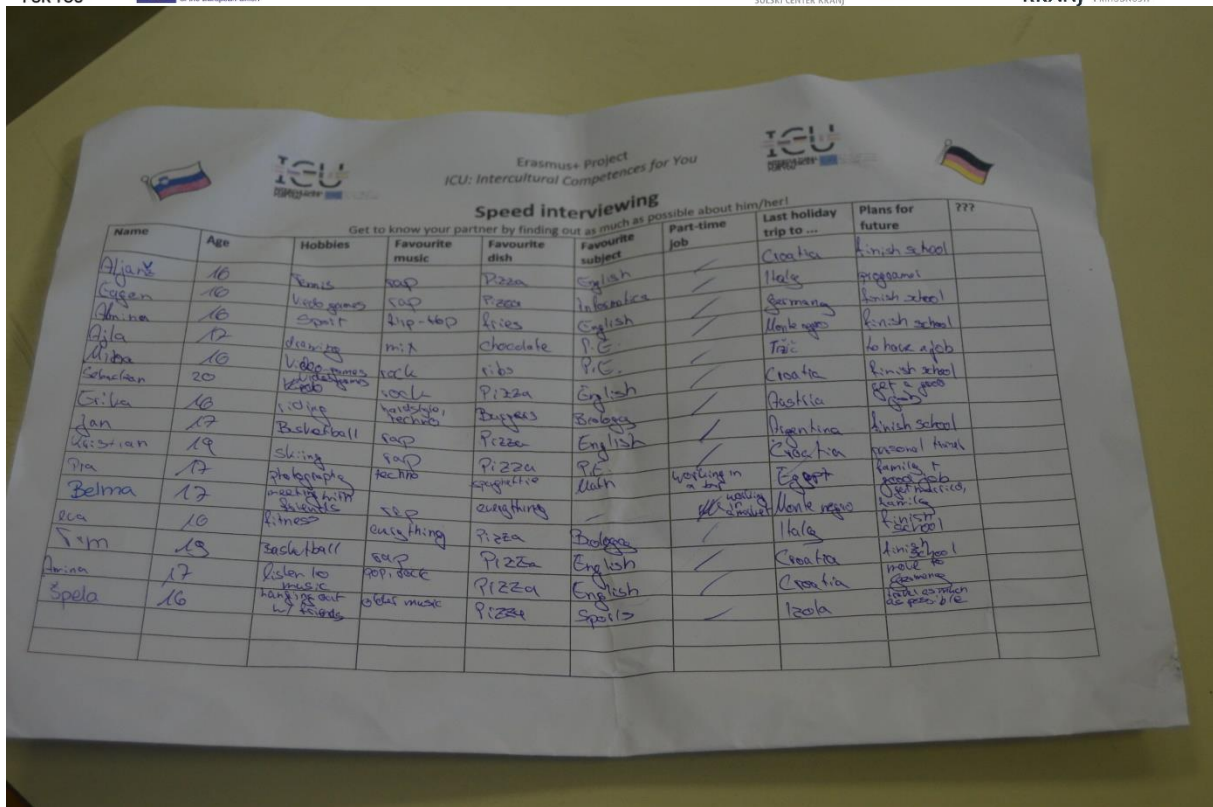 FOR YOU
ŠOLSKI CENTER KRANJ
KRANJ
ICU
ICU
Erasmus+ Project
ICU: Intercultural Competences for You
Speed interviewing
Get to know your partner by finding out as much as possible about him/her!
Name Age Hobbies Favourite music Favourite dish Favourite subject Part-time job Last holiday trip to ... Plans for future ???
Aljanž 16 Tenis rap Pizza English / Croatia finish school
16 Video games rap Pizza Informatics / Italy
Amina 16 Sport hip-hop fries English / Germany finish school
Ajla 17 drawing mix chocolate P.E. / finish school
16 Video games rock ribs P.E. / to have a job
20 videogames rock Pizza English / Croatia finish school
16 riding hardstyle, techno Burgers Biology get a good job
Jan 17 Basketball rap Pizza English / Argentina finish school
Kristian 19 Skiing rap Pizza P.E. / Croatia personal
17 photography techno Math working in a bar Egypt family + good job
Belma 17 meeting with friends rap everything / working in Montenegro get married, family
eva 16 fitness everything Pizza Biology / Italy finish school
Tym 19 Basketball rap Pizza English / Croatia finish school
Amina 17 listen to music pop, rock Pizza English / Croatia move to Germany
Špela 16 hanging out w/ friends older music Pizza Sports / Izola as much as possible